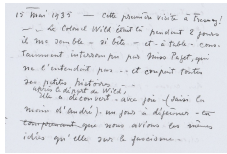 15 mai 1935 — Cette première visite à Traouq!
— . . Le Colonel Wild était là pendant 2 jours
il me semble - si bête - et - à table - cons-
tamment interrompu par Miss Paget, qui
ne l'entendait pas . . et coupait toutes
ses petites histoires . . .
après le départ de Wild,
elle a découvert - avec joie (sans la
main d'André). un jour à déjeuner - la
comprenant que nous avions les mêmes
idées qu'elle sur le fascisme.